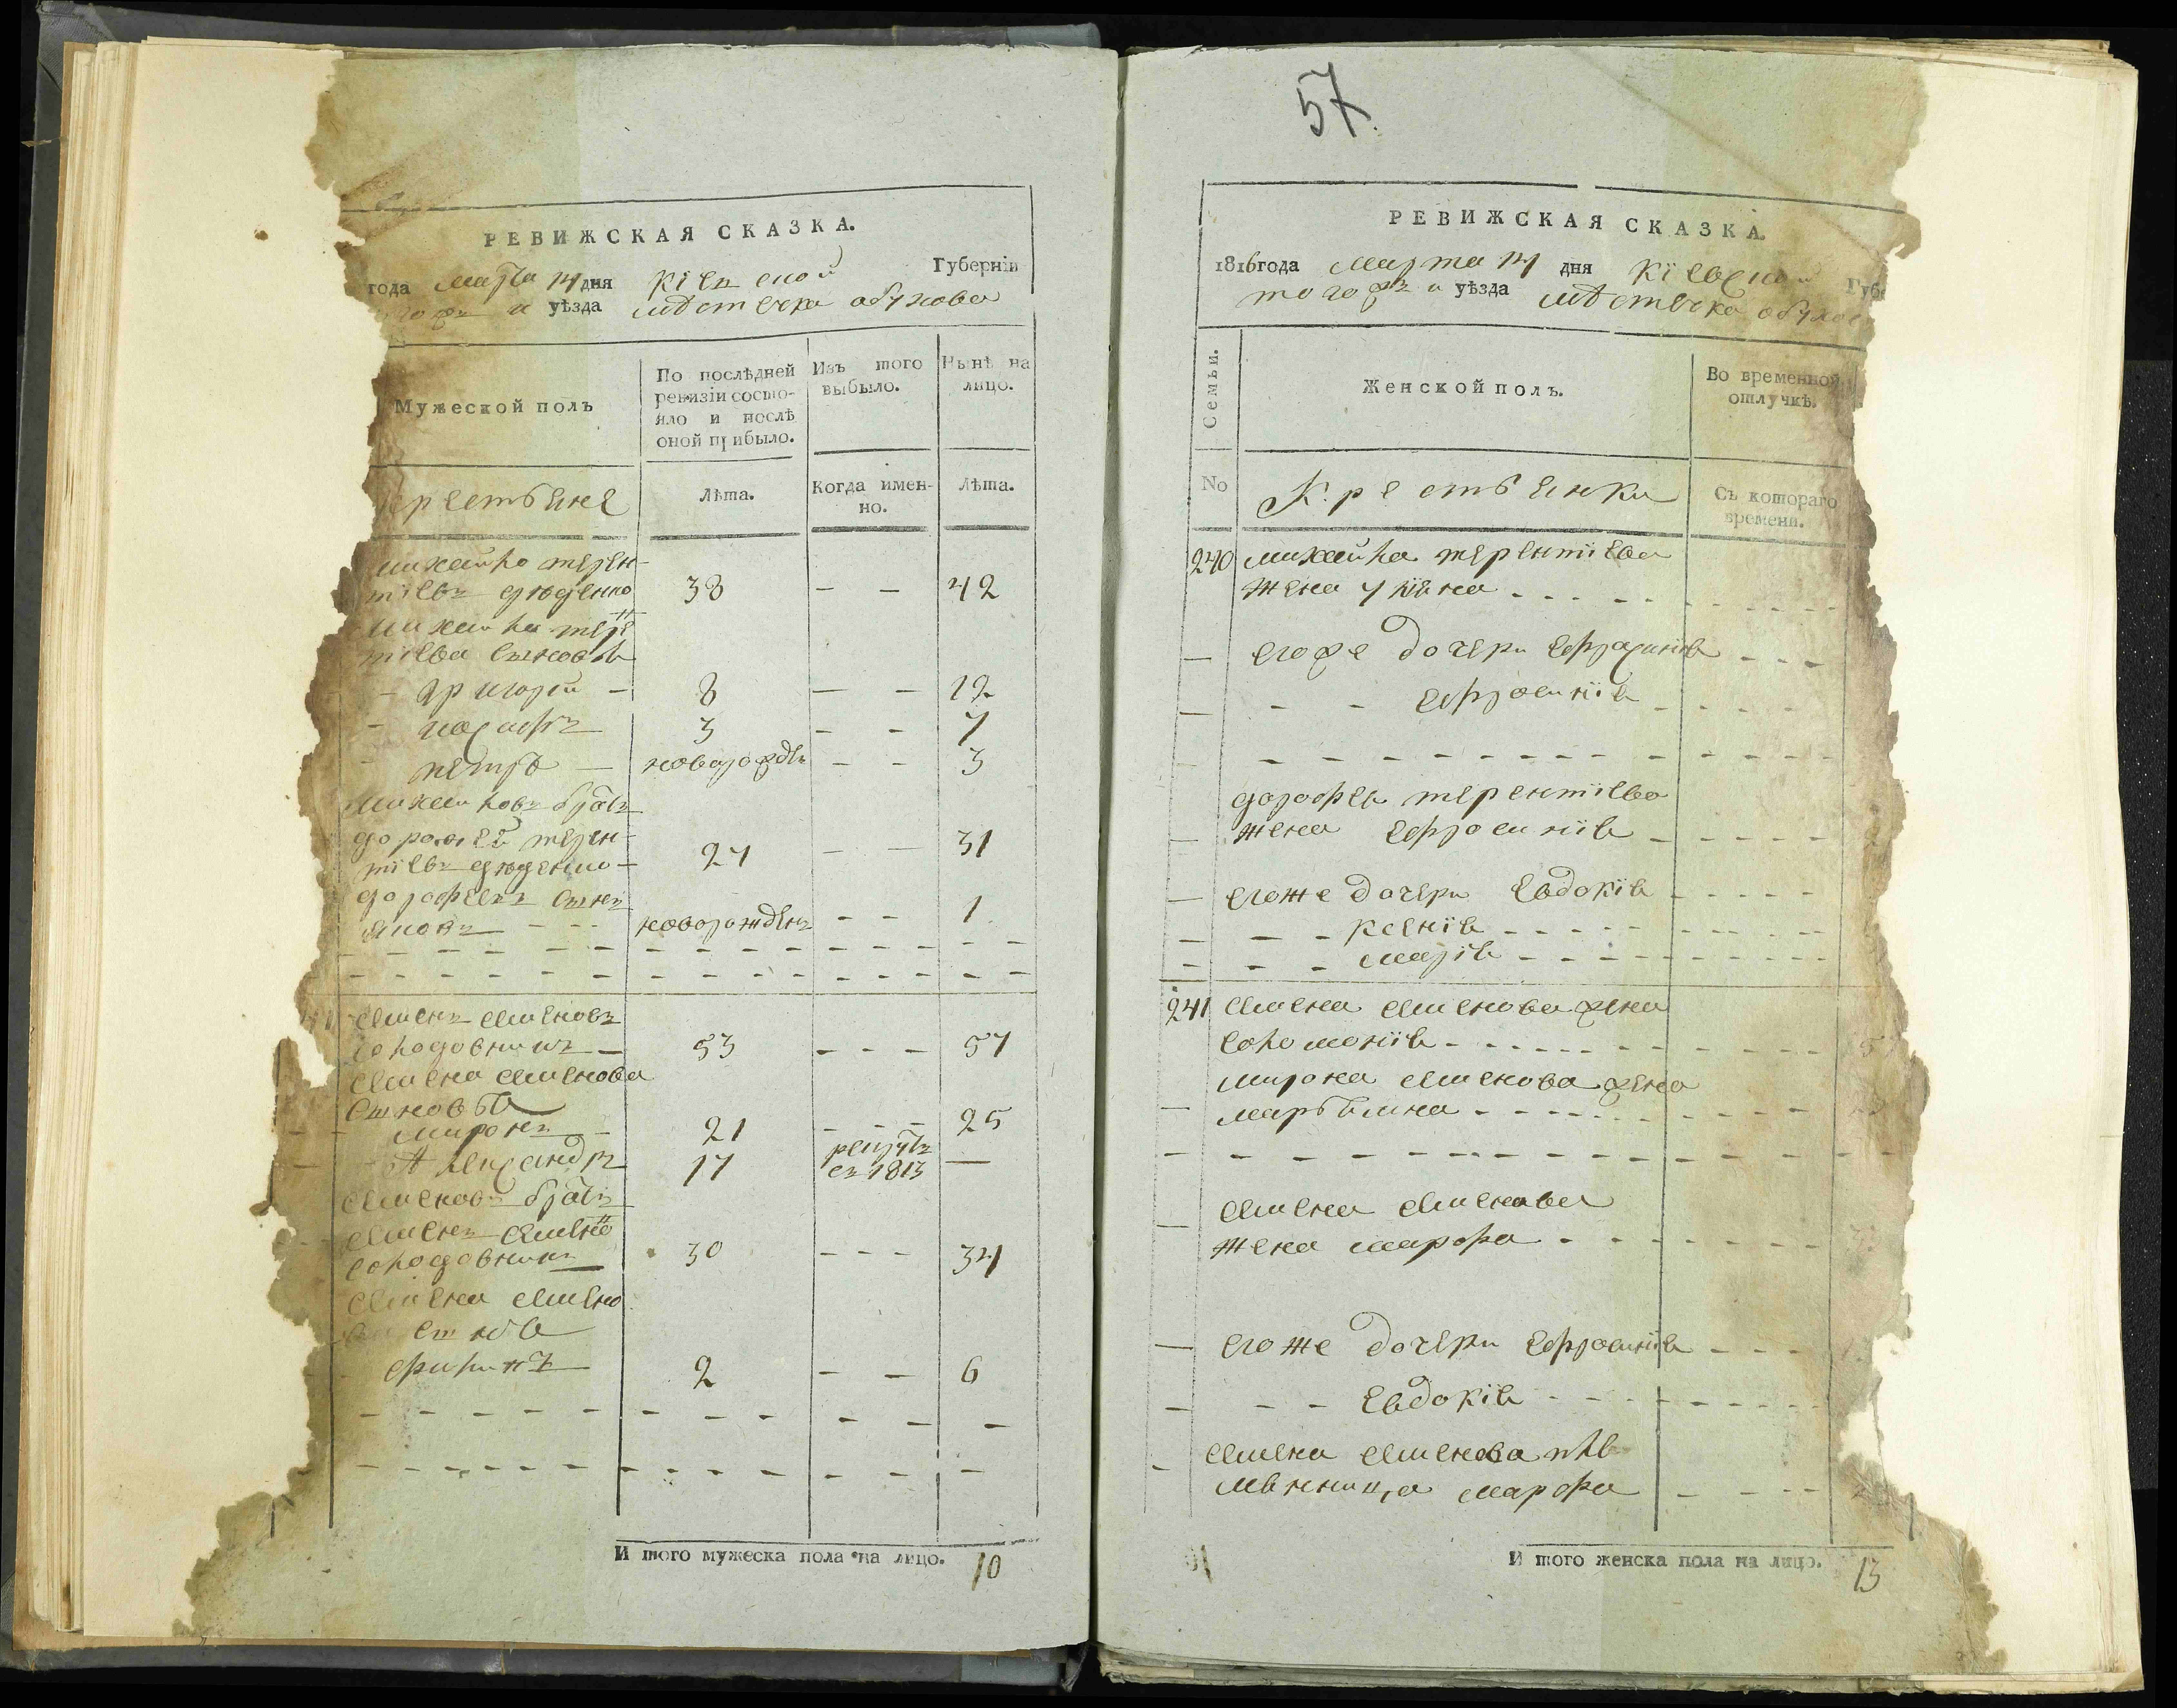 РЕВИЖСКАЯ СКАЗКА.
года марта 14 дня Кіевской Губерніи
и уѣзда мѣстечка обухова
Мужеской полъ
По послѣдней ревизіи состояло и послѣ оной прибыло.
Изъ того выбыло.
Нынѣ на лицо.
Лѣта.
Когда именно.
Лѣта.
михайло терен-
тіевъ дюденко 38 - - 42
михайла тере
тіева сыновья
- григорій - 8 - - 12
- иосифъ 3 - - 7
петръ - новорожден - - 3
михайловъ братъ
дорофей терен-
тіевъ дюденко - 27 - - 31
дорофеевъ сынъ
яковъ новорожденъ - - 1
семенъ семеновъ
солодовникъ - 53 - - - 57
семена семенова
сыновья
миронъ 21 - - - 25
Александръ 17 рекрутъ съ 1813 -
семеновъ братъ
семенъ семено
солодовникъ 30 - - - 34
семена семено
сынъ
филипъ 2 - - 6
И того мужеска пола на лицо. 10
57.
РЕВИЖСКАЯ СКАЗКА.
1816 года марта 14 дня Кіевской Губе
тогожъ и уѣзда мѣстечка обухов
Семьи.
Женской полъ.
Во временной отлучкѣ.
No
Крестьянки
Съ котораго времени.
240 михайла терентіева
жена уліяна
егоже дочери ефросинія
- - ефросинія
дорофея терентіева
жена ефросинія
егоже дочери евдокія
- - ксенія
- - марія
241 семена семенова жена
соломонія
мирона семенова жена
марьяна
семена семенова
жена марфа
егоже дочери ефросинія
- - евдокія
семена семенова пле
мянница марфа
И того женска пола на лицо. 13